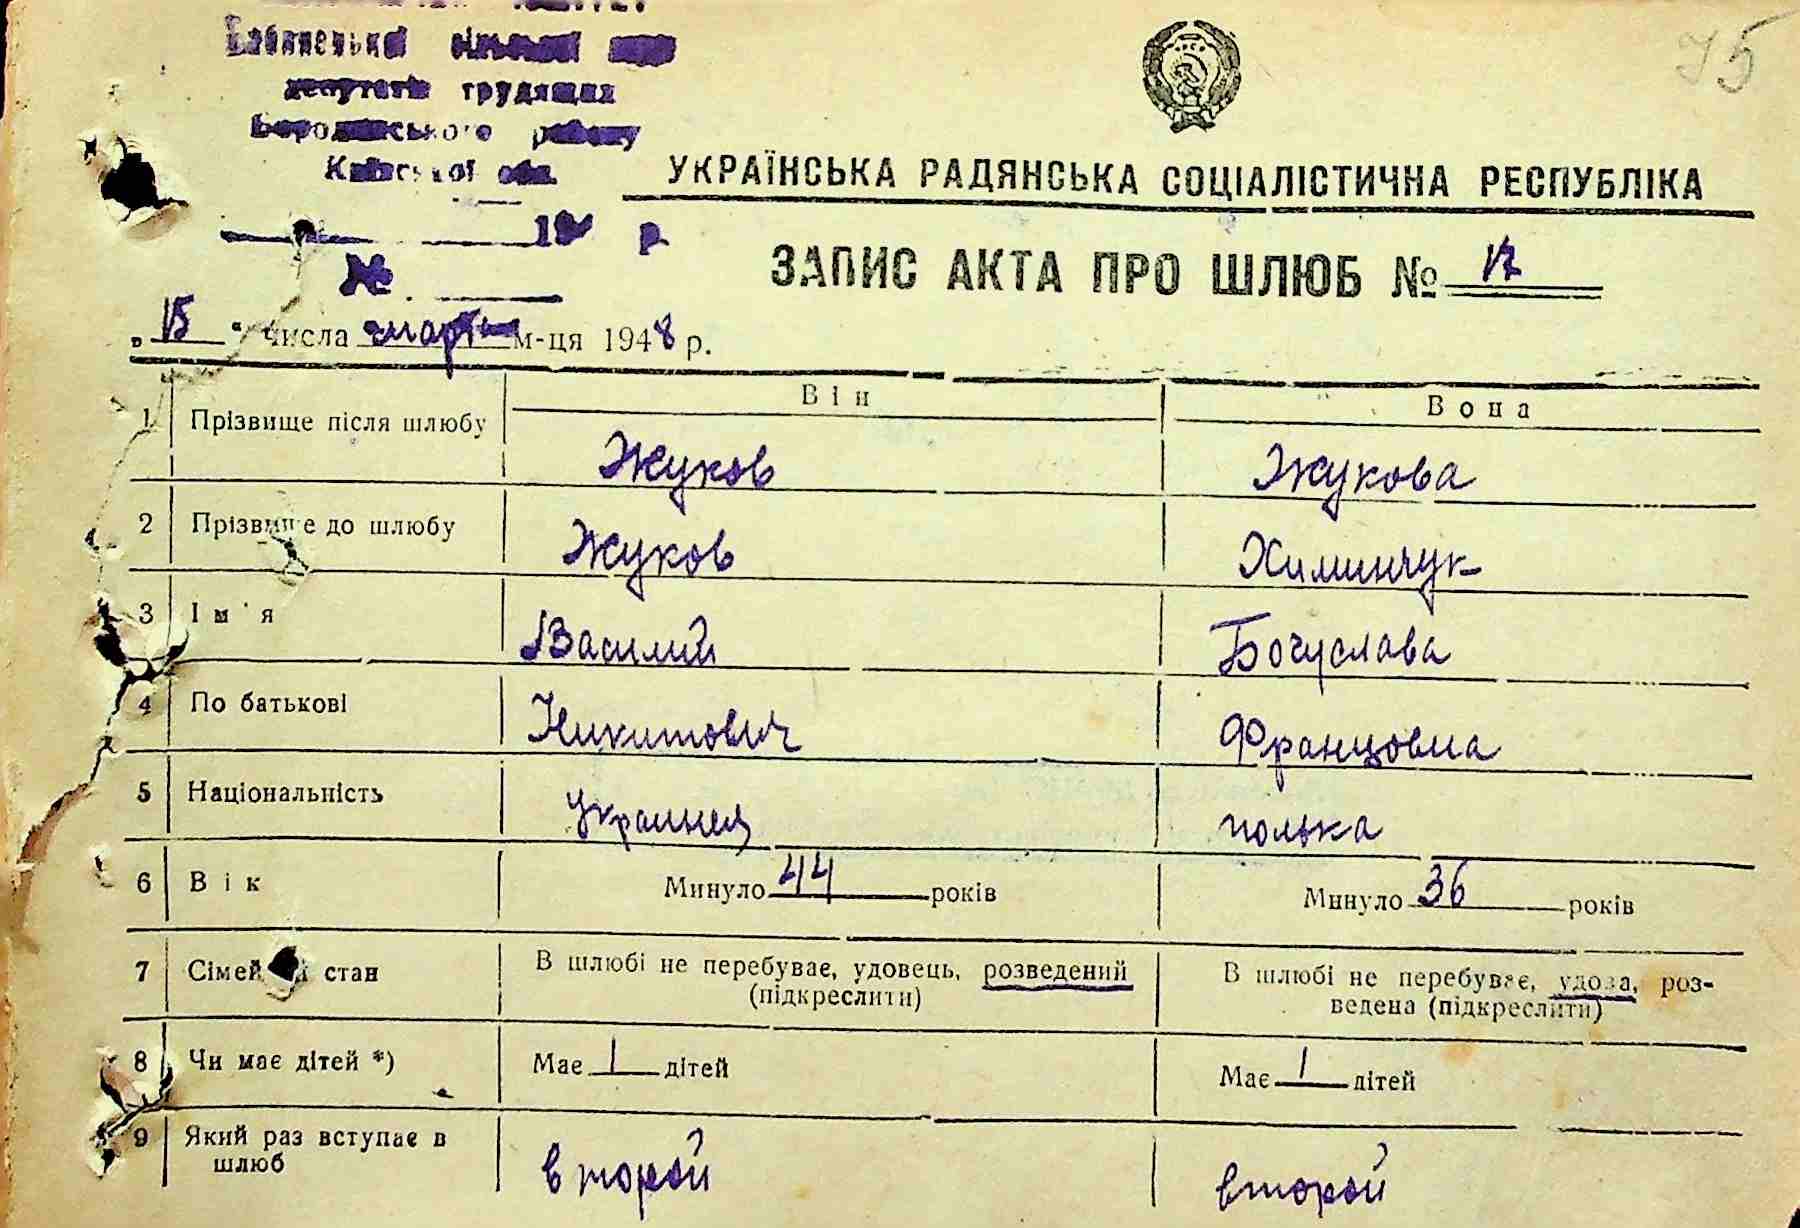 75
депутатів трудящих
Бородянського району
Київської обл.
УКРАЇНСЬКА РАДЯНСЬКА СОЦІАЛІСТИЧНА РЕСПУБЛІКА
19 р
№
ЗАПИС АКТА ПРО ШЛЮБ № 17
"15" числа марта м-ця 1948 р.
Він Вона
1 Прізвище після шлюбу Жуков Жукова
2 Прізвище до шлюбу Жуков Химинчук
3 Ім'я Василий Богуслава
4 По батькові Никитович Францовна
5 Національність украинец полька
6 Вік Минуло 44 років Минуло 36 років
7 Сімейний стан В шлюбі не перебуває, удовець, розведений В шлюбі не перебуває, удова, роз-
(підкреслити) ведена (підкреслити)
8 Чи має дітей *) Має 1 дітей Має 1 дітей
9 Який раз вступає в второй второй
шлюб